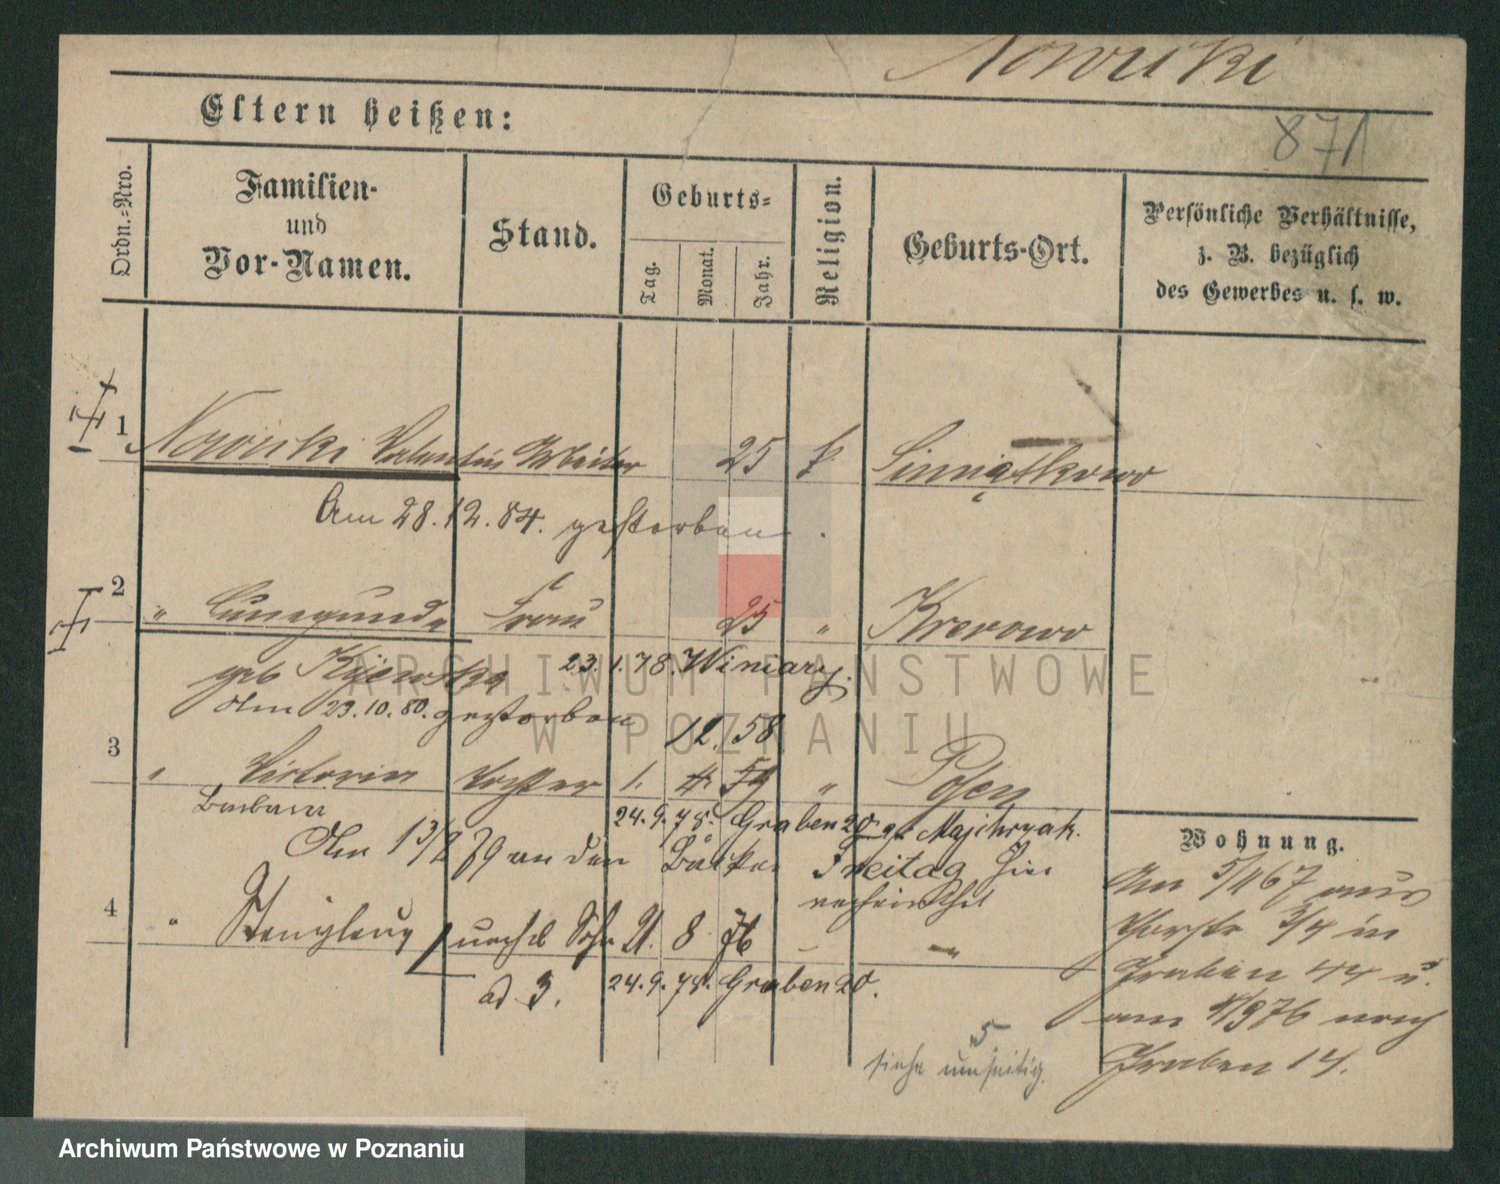 Nowicki
Eltern heißen:
871
Ordn.-Nro.
Familien-
und
Vor-Namen.
Stand.
Geburts-
Tag.
Monat.
Jahr.
Religion.
Geburts-Ort.
Persönliche Verhältnisse,
z. B. bezüglich
des Gewerbes u. s. w.
1 Nowicki Valentin Arbeiter 25 k
Am 28.12.84. gestorben.
2 " Cunegunde Frau 25 " Krerowo
geb Kijewska 23.1.78. Winiary.
Am 29.10.80. gestorben
12. 58
3 " Victoria Tochter 1. 4 59 " Posen
Barbara 24.9.78. Graben 20 Majchrzak.
Am 13/2 79 an den Bäcker Freitag hier
verheirathet
4 " Stanislaus unehel Sohn 21. 8 76 — "
ad 3. 24.9.78. Graben 20.
Wohnung.
Am 5/4 67 aus
3/4 in
Graben 44 u.
am 4/9 76 nach
Graben 14.
5
siehe umseitig.
ARCHIWUM PAŃSTWOWE
W POZNANIU
Archiwum Państwowe w Poznaniu